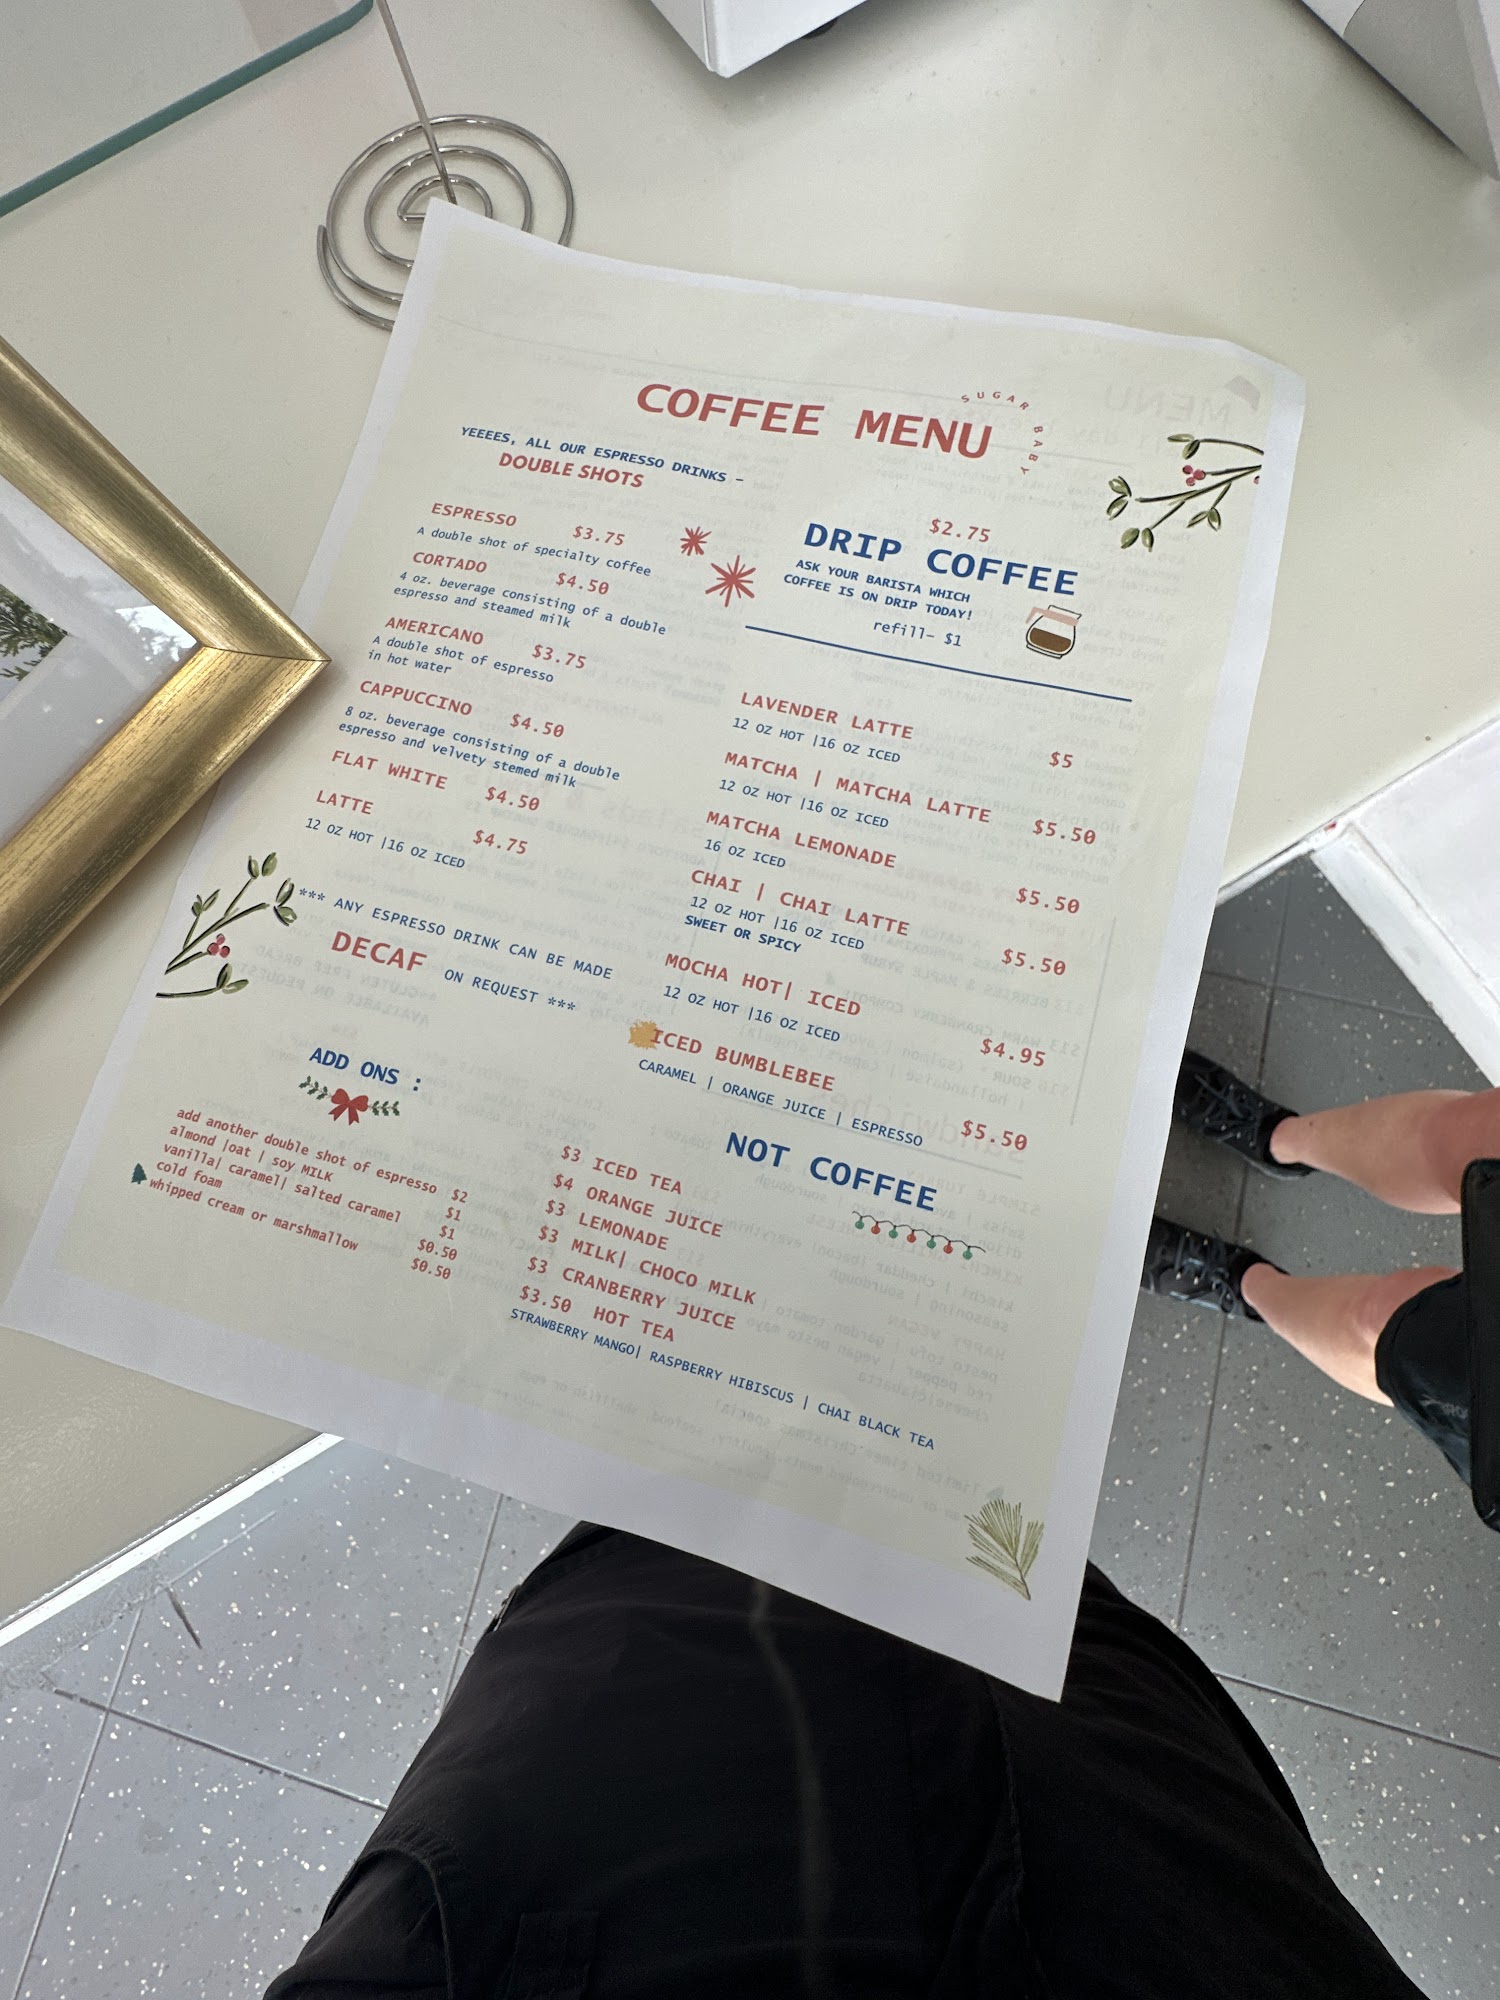 COFFEE MENU
SUGAR BABY
YEEEES, ALL OUR ESPRESSO DRINKS –
DOUBLE SHOTS
ESPRESSO $3.75
A double shot of specialty coffee
CORTADO $4.50
4 oz. beverage consisting of a double
espresso and steamed milk
AMERICANO $3.75
A double shot of espresso
in hot water
CAPPUCCINO $4.50
8 oz. beverage consisting of a double
espresso and velvety stemed milk
FLAT WHITE $4.50
LATTE $4.75
12 OZ HOT |16 OZ ICED
*** ANY ESPRESSO DRINK CAN BE MADE
DECAF ON REQUEST ***
ADD ONS :
add another double shot of espresso $2
almond |oat | soy MILK $1
vanilla| caramel| salted caramel $1
cold foam $0.50
whipped cream or marshmallow $0.50
$2.75
DRIP COFFEE
ASK YOUR BARISTA WHICH
COFFEE IS ON DRIP TODAY!
refill– $1
LAVENDER LATTE $5
12 OZ HOT |16 OZ ICED
MATCHA | MATCHA LATTE $5.50
12 OZ HOT |16 OZ ICED
MATCHA LEMONADE $5.50
16 OZ ICED
CHAI | CHAI LATTE $5.50
12 OZ HOT |16 OZ ICED
SWEET OR SPICY
MOCHA HOT| ICED $4.95
12 OZ HOT |16 OZ ICED
ICED BUMBLEBEE $5.50
CARAMEL | ORANGE JUICE | ESPRESSO
NOT COFFEE
$3 ICED TEA
$4 ORANGE JUICE
$3 LEMONADE
$3 MILK| CHOCO MILK
$3 CRANBERRY JUICE
$3.50 HOT TEA
STRAWBERRY MANGO| RASPBERRY HIBISCUS | CHAI BLACK TEA